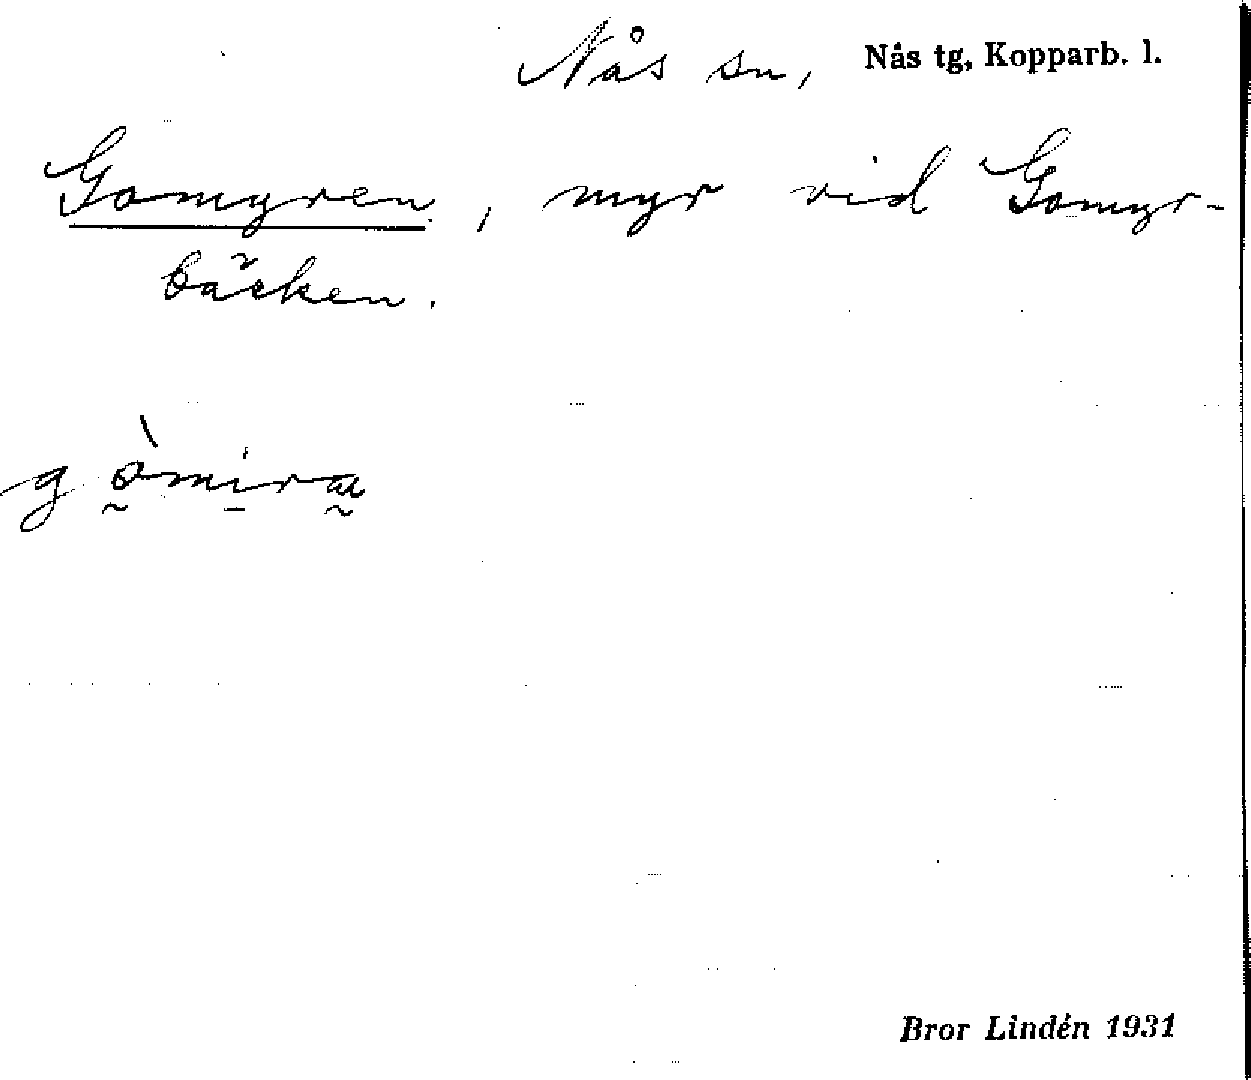 Nås sn, Nås tg, Kopparb. l.
Gomyren, myr vid Gomyr-
bäcken.
gòmira
Bror Lindén 1931